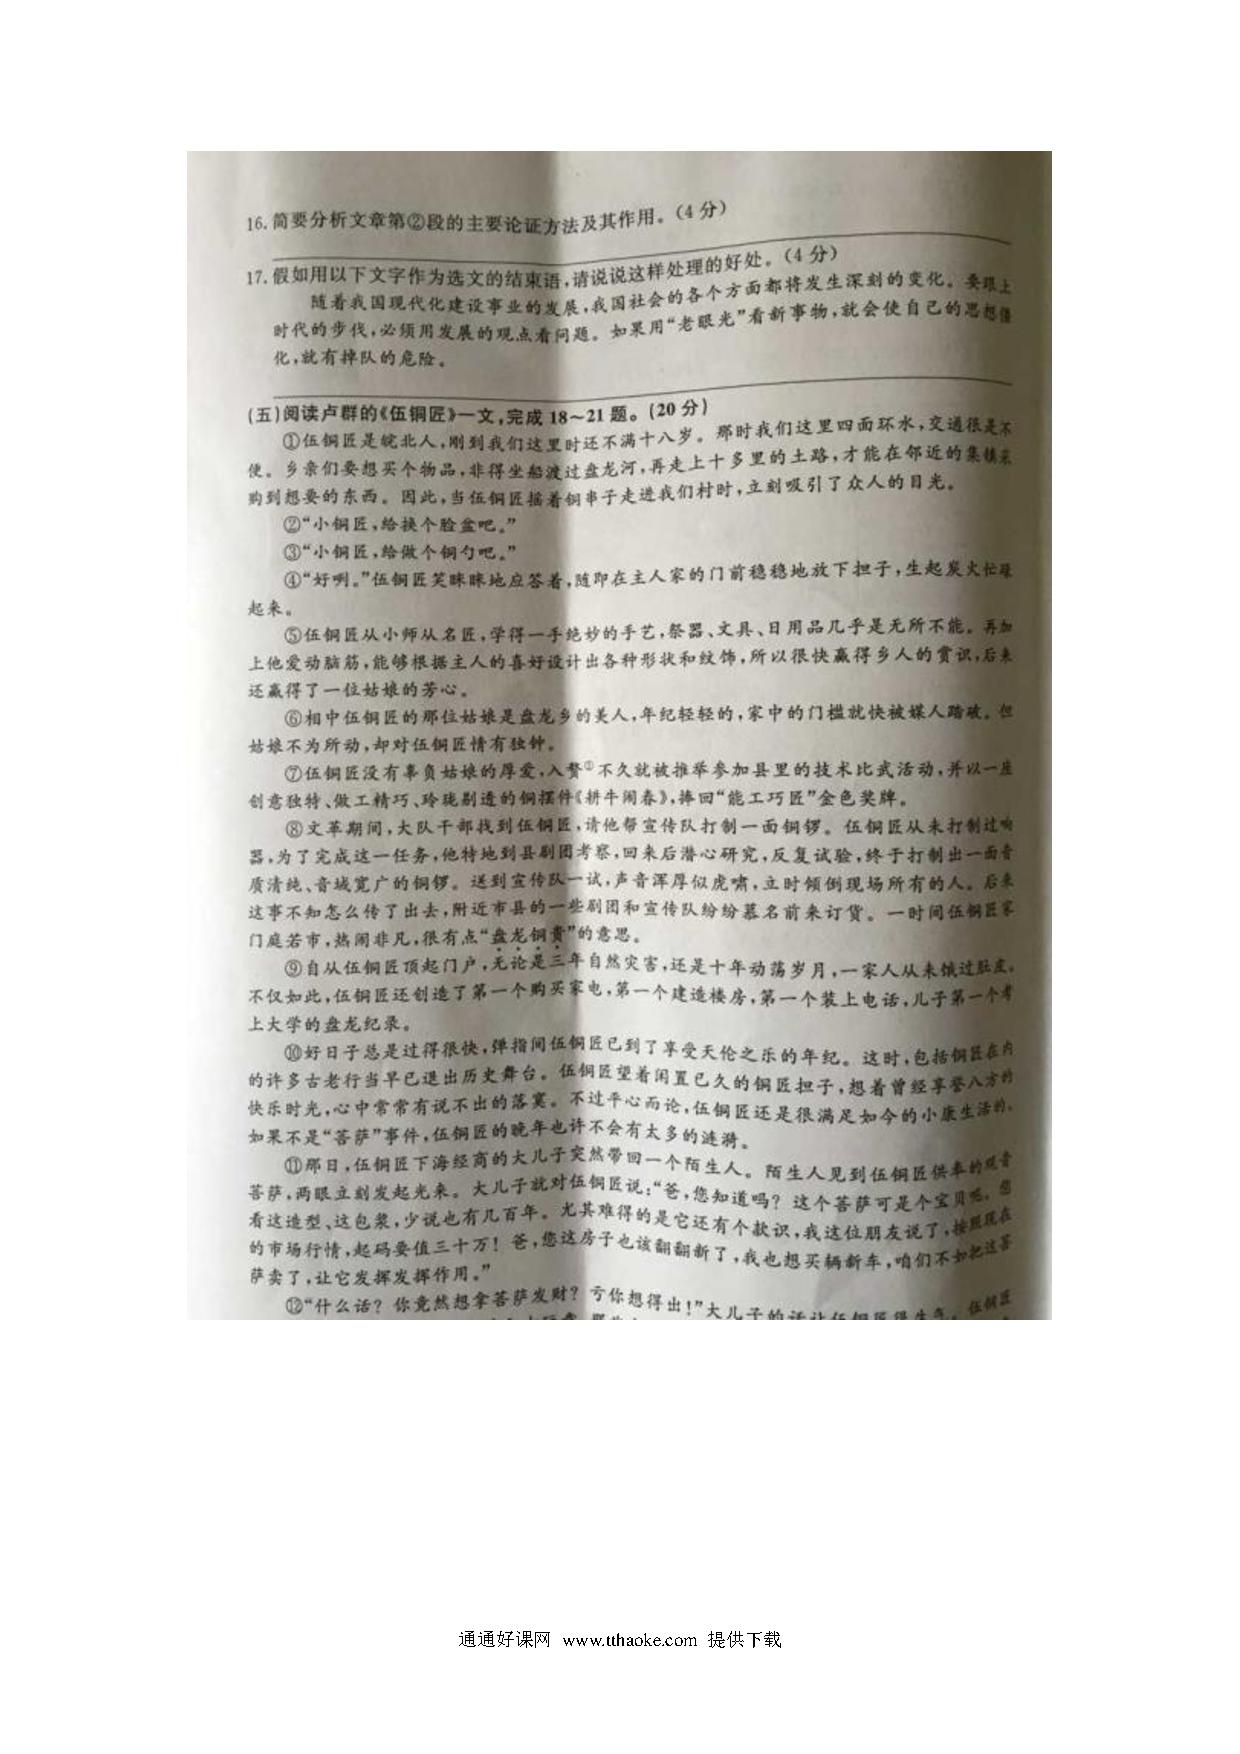 16.简要分析文章第②段的主要论证方法及其作用。(4分)
17.假如用以下文字作为选文的结束语,请说说这样处理的好处。(4分)
随着我国现代化建设事业的发展,我国社会的各个方面都将发生深刻的变化。要跟上
时代的步伐,必须用发展的观点看问题。如果用“老眼光”看新事物,就会使自己的思想僵
化,就有掉队的危险。
(五)阅读卢群的《伍铜匠》一文,完成18~21题。(20分)
①伍铜匠是皖北人,刚到我们这里时还不满十八岁。那时我们这里四面环水,交通很是不
便。乡亲们要想买个物品,非得坐船渡过盘龙河,再走上十多里的土路,才能在邻近的集镇采
购到想要的东西。因此,当伍铜匠摇着铜串子走进我们村时,立刻吸引了众人的目光。
②“小铜匠,给换个脸盆吧。”
③“小铜匠,给做个铜勺吧。”
④“好咧。”伍铜匠笑眯眯地应答着,随即在主人家的门前稳稳地放下担子,生起炭火忙碌
起来。
⑤伍铜匠从小师从名匠,学得一手绝妙的手艺,祭器、文具、日用品几乎是无所不能。再加
上他爱动脑筋,能够根据主人的喜好设计出各种形状和纹饰,所以很快赢得乡人的赏识,后来
还赢得了一位姑娘的芳心。
⑥相中伍铜匠的那位姑娘是盘龙乡的美人,年纪轻轻的,家中的门槛就快被媒人踏破。但
姑娘不为所动,却对伍铜匠情有独钟。
⑦伍铜匠没有辜负姑娘的厚爱,入赘①不久就被推举参加县里的技术比武活动,并以一座
创意独特、做工精巧、玲珑剔透的铜摆件《耕牛闹春》,捧回“能工巧匠”金色奖牌。
⑧文革期间,大队干部找到伍铜匠,请他帮宣传队打制一面铜锣。伍铜匠从未打制过响
器,为了完成这一任务,他特地到县剧团考察,回来后潜心研究,反复试验,终于打制出一面音
质清纯、音域宽广的铜锣。送到宣传队一试,声音浑厚似虎啸,立时倾倒现场所有的人。后来
这事不知怎么传了出去,附近市县的一些剧团和宣传队纷纷慕名前来订货。一时间伍铜匠家
门庭若市,热闹非凡,很有点“盘龙铜贵”的意思。
⑨自从伍铜匠顶起门户,无论是三年自然灾害,还是十年动荡岁月,一家人从未饿过肚皮。
不仅如此,伍铜匠还创造了第一个购买家电,第一个建造楼房,第一个装上电话,儿子第一个考
上大学的盘龙纪录。
⑩好日子总是过得很快,弹指间伍铜匠已到了享受天伦之乐的年纪。这时,包括铜匠在内
的许多古老行当早已退出历史舞台。伍铜匠望着闲置已久的铜匠担子,想着曾经享誉八方的
快乐时光,心中常常有说不出的落寞。不过平心而论,伍铜匠还是很满足如今的小康生活的。
如果不是“菩萨”事件,伍铜匠的晚年也许不会有太多的涟漪。
⑪那日,伍铜匠下海经商的大儿子突然带回一个陌生人。陌生人见到伍铜匠供奉的观音
菩萨,两眼立刻发起光来。大儿子就对伍铜匠说:“爸,您知道吗?这个菩萨可是个宝贝呢。您
看这造型、这包浆,少说也有几百年。尤其难得的是它还有个款识,我这位朋友说了,按照现在
的市场行情,起码要值三十万!爸,您这房子也该翻翻新了,我也想买辆新车,咱们不如把这菩
萨卖了,让它发挥发挥作用。”
⑫“什么话?你竟然想拿菩萨发财?亏你想得出!”大儿子的话让伍铜匠很生气。伍铜匠
通通好课网 www.tthaoke.com 提供下载